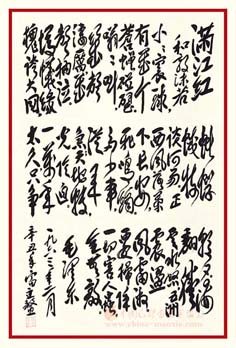 满江红
和郭沫若
小小寰球
有几个
苍蝇碰壁
嗡嗡叫
几声抽泣
槐夸大国
蚍蜉
撼树
谈何易正
西风落叶
下长安
飞鸣镝
多少事
从来
急天地转
光阴迫
一万年
太久只争
朝夕四海
翻腾
云水怒五洲
震荡
风雷激
要扫除
一切害人虫
全无敌
毛泽东
一九六三年一月
辛丑年